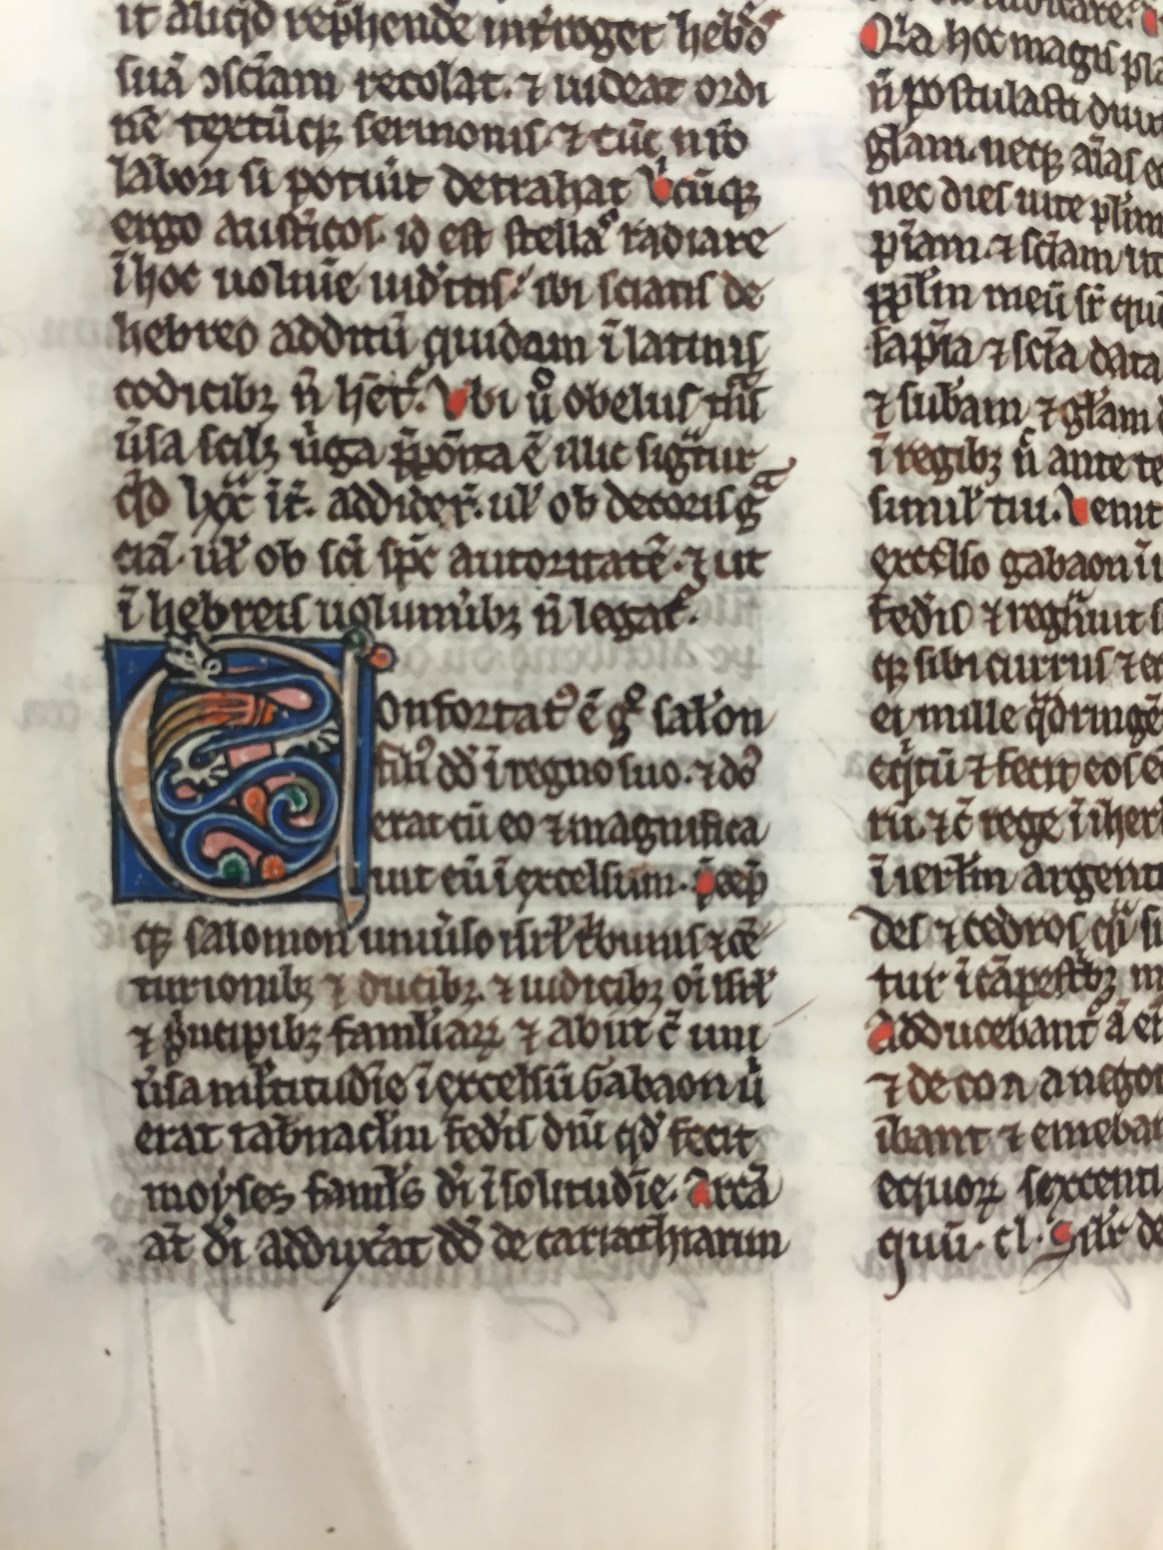 it aliq̇d rep̄hende int̾roget heb̾o᷒
suā ɔsciam recolat. ⁊ uideat ordi
nē textūq; sermonis. ⁊ tūc nr̄o
labori si potuīt detrahat Vͥcūq;
ergo austīcos. id est stellaˢ radiare
ī hoc uolum̄e uid̾itis. ibi sciatis de
hebreo additū quidam ī latinis
codicib; n̄ het̄᷒. Vbi ů obelus tͣnˢ
ūsa scil; ůga p̄po͞ita ē illic sigͣtur
q̇d lxͣx īt̄. addider̄. ul̾ ob decoris gͣ
ciā. ul̾ ob sc̄i sp̄c autoritatē. ⁊ ut
ī hebreis uolumīb; n̄ legāt᷒.
Confortatꝰ ē gͦ salōon
filiꝰ dd̄ ī regno suo. ⁊ dn̄ˢ
erat cū eo ⁊ magnifica
uit eū ī excelsum. p̄cep̄
q; salomon uniůso isrl̾ tͥbunis ⁊ cē
turionib; ⁊ ducib;. ⁊ iudicib; oī isrl̾
⁊ pͥncipib; familiaꝝ ⁊ abiit c̄ uni
ůsa ml̾titudīe ī excelsū Gabaon ů
erat tab̾nacl̄m fed̾is dn̄i qd̾ fecit
moyses faml̾s di̾ ī solitudīe. Arcā
at̄ di̾ adduxāt dd̄ de cariathiarim
Qͥa hoc magis pla
n̄ postulasti diui
gl̄am. neq; aīas eo
nec dies uite pl̾im
p̄iam. ⁊ sciam ut
pp̄lm meū sr̄ que
sapīa ⁊ scīa data
⁊ subam ⁊ gl̄am d
ī regib; n̄ ante te
simil̾ tui. Venit
excelso gabaon ī i
fed̾is ⁊ regͣuit s
q; sibi currus ⁊ eq
ei mille qͣdringē
eqͥtū ⁊ fecit eos eē
rū. ⁊ c̄ rege ī iher
ī ier̄lm argentū
des ⁊ cedros qͣi si
tur ī cāpestb; m
Adducebant᷒ ā ei
⁊ de coa a negot
ibant ⁊ emebat
equoꝝ sexcenti
quū. cl. Silr̄ de